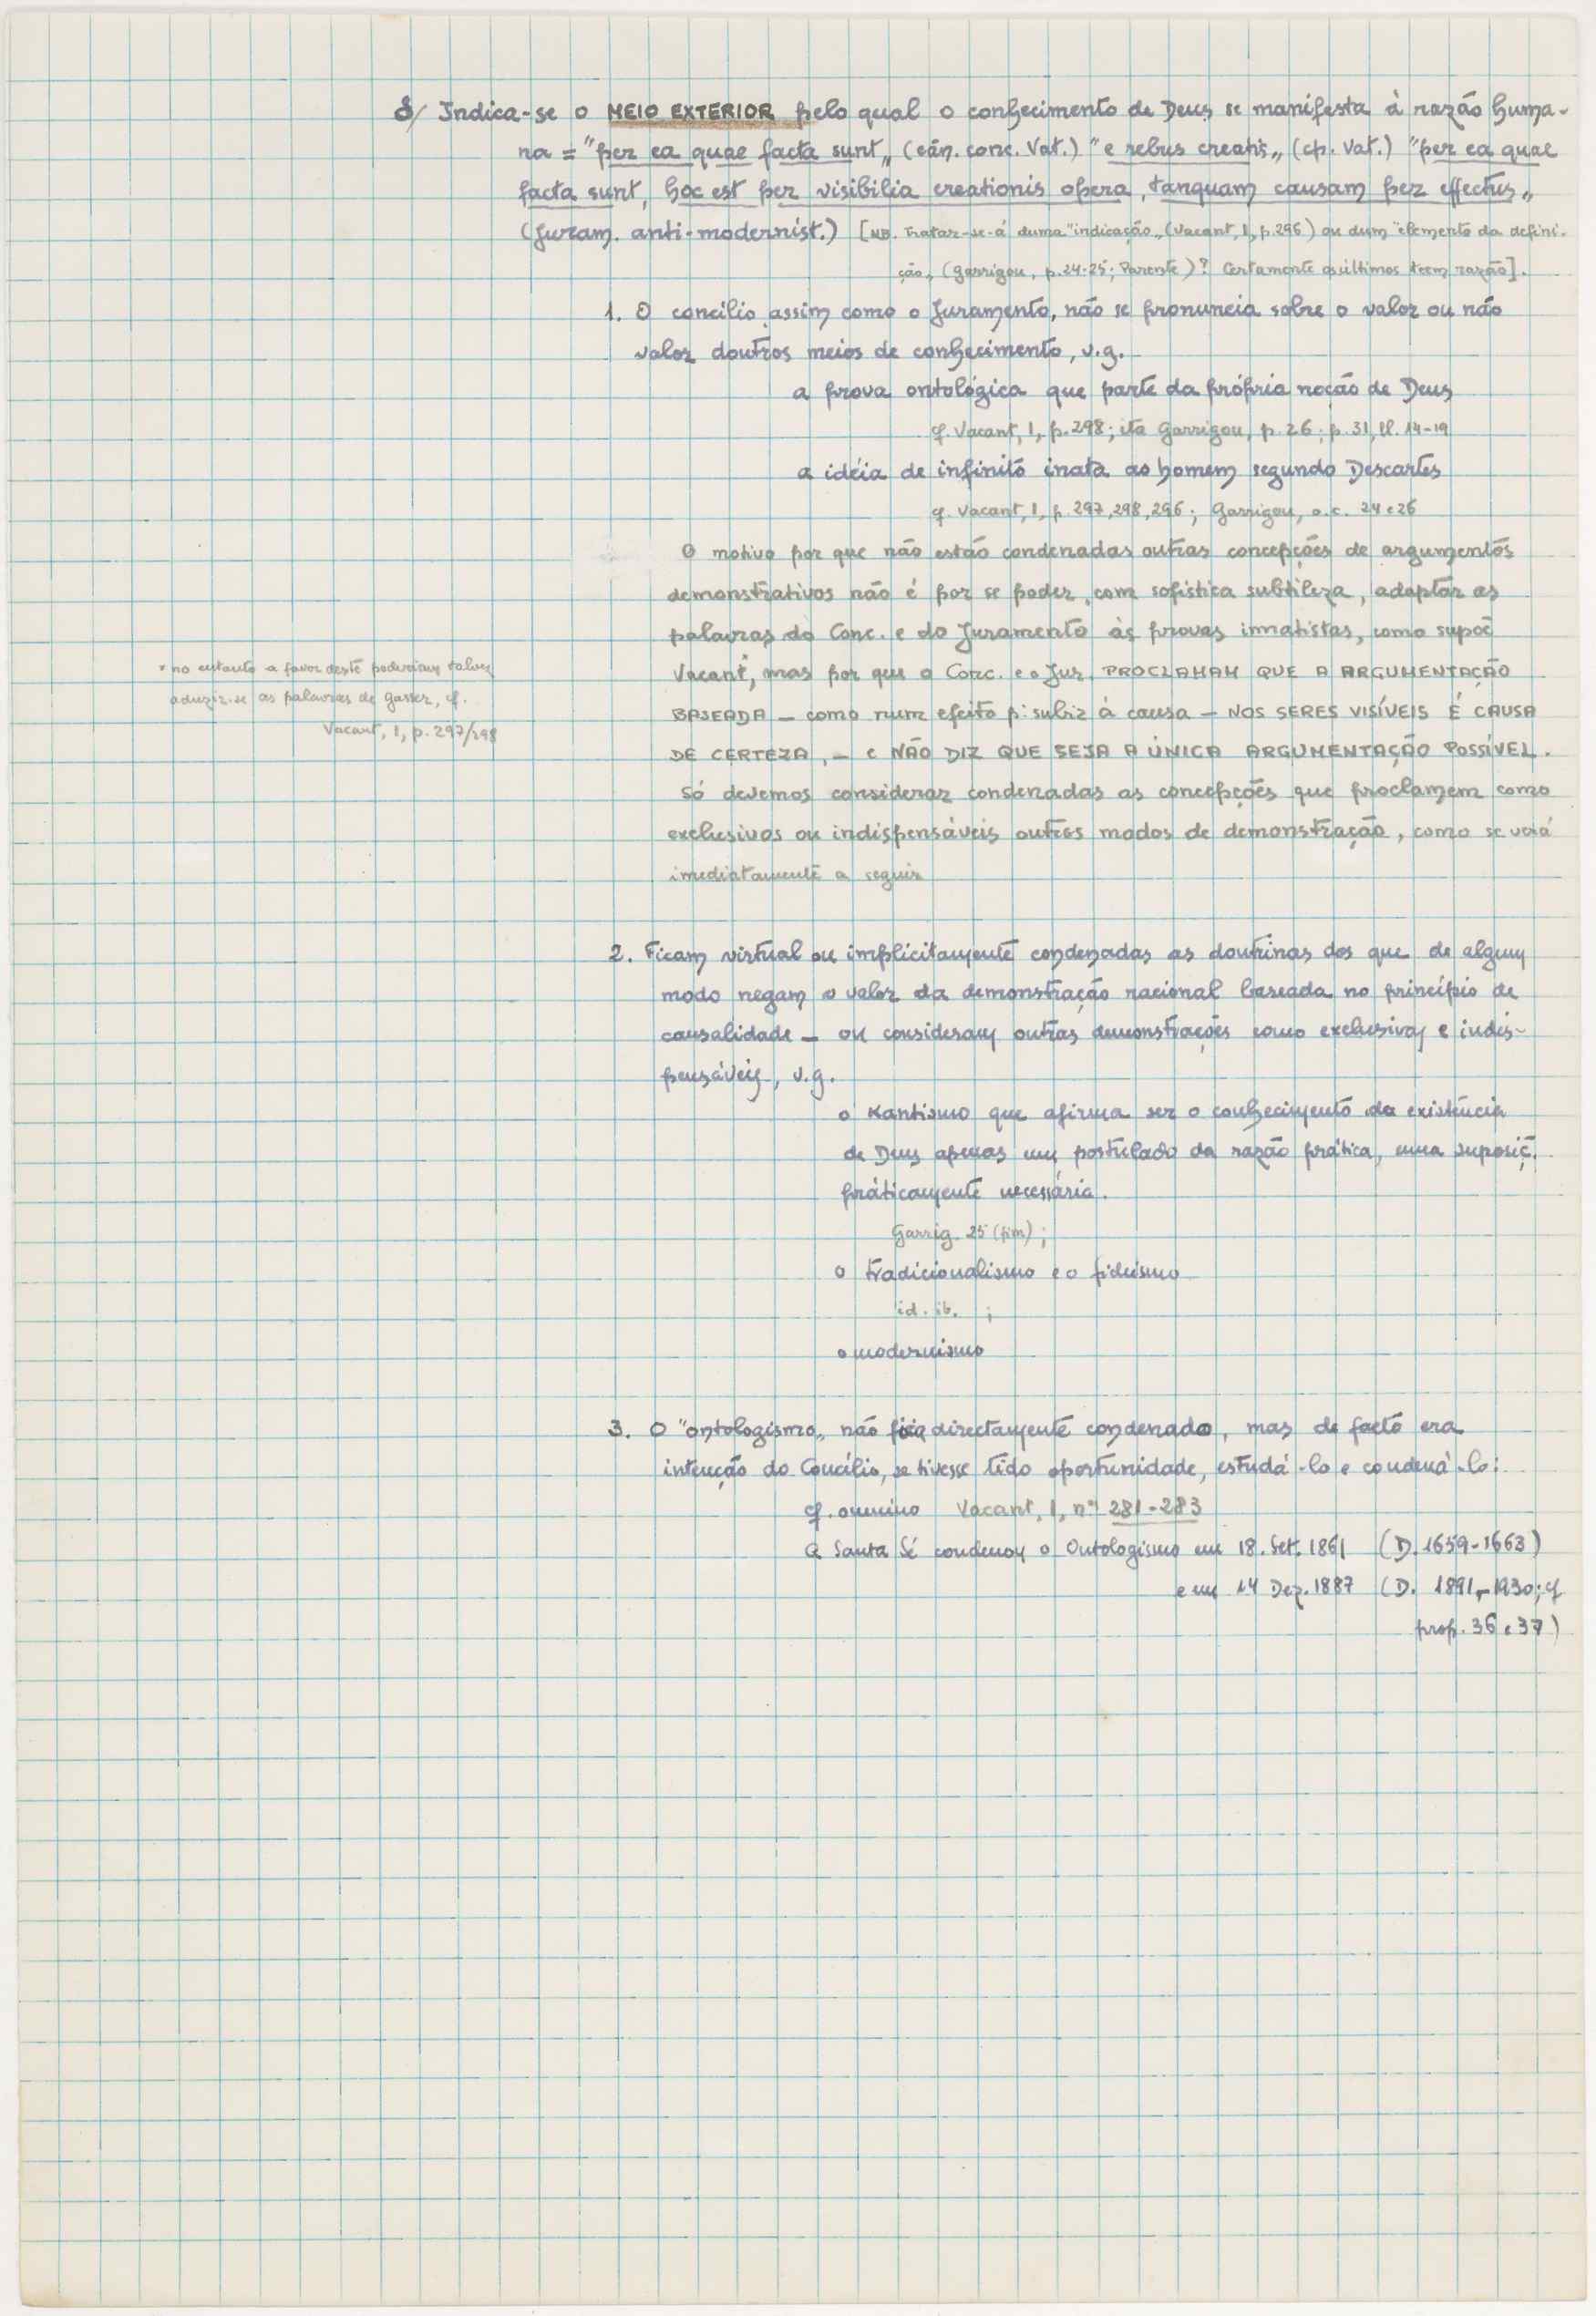 δ/ Indica-se o MEIO EXTERIOR pelo qual o conhecimento de Deus se manifesta à razão huma-
na = "per ea quae facta sunt„ (cân. conc. Vat.) "e rebus creatis„ (cp. Vat.) "per ea quae
facta sunt, hoc est per visibilia creationis opera, tanquam causam per effectus„
(Juram. anti-modernist.) [NB. Tratar-se-á duma "indicação„ (Vacant, 1, p. 296) ou dum "elemento da defini-
ção„ (Garrigou, p. 24-25; Parente)? Certamente os últimos teem razão].
1. O concílio assim como o Juramento, não se pronuncia sobre o valor ou não
valor doutros meios de conhecimento, v.g.
a prova ontológica que parte da própria noção de Deus
cf. Vacant, 1, p. 298; ita Garrigou, p. 26; p. 31, ll. 14-19
a idéia de infinito inata ao homem segundo Descartes
cf. Vacant, 1, p. 297, 298, 296; Garrigou, o.c. 24 e 26
O motivo por que não estão condenadas outras concepções de argumentos
demonstrativos não é por se poder, com sofística subtileza, adaptar as
palavras do Conc. e do Juramento às provas innatistas, como supoẽ
Vacant*, mas por que o Conc. e o Jur. PROCLAMAM QUE A ARGUMENTAÇÃO
BASEADA — como num efeito p: subir à causa — NOS SERES VISÍVEIS É CAUSA
DE CERTEZA, — e NÃO DIZ QUE SEJA A ÚNICA ARGUMENTAÇÃO POSSÍVEL.
Só devemos considerar condenadas as concepções que proclamem como
exclusivos ou indispensáveis outros modos de demonstração, como se verá
imediatamente a seguir
* no entanto a favor deste poderiam talvez
aduzir-se as palavras de Gasser, cf.
Vacant, 1, p. 297/298
2. Ficam virtual ou implicitamente condenadas as doutrinas dos que de algum
modo negam o valor da demonstração racional baseada no princípio de
causalidade — ou consideram outras demonstrações como exclusivas e indis-
pensáveis, v.g.
o Kantismo que afirma ser o conhecimento da existência
de Deus apenas um postulado da razão prática, uma suposiç.
práticamente necessária.
Garrig. 25 (fim);
o tradicionalismo e o fideismo
id. ib. ;
o modernismo
3. O "ontologismo„ não fica directamente condenado, mas de facto era
intenção do Concílio, se tivesse tido oportunidade, estudá-lo e condená-lo:
cf. omnino Vacant, 1, nº 281-283
A Santa Sé condenou o Ontologismo em 18. Set. 1861 (D. 1659-1663)
e em 14 Dez. 1887 (D. 1891-1930; cf
prop. 36 e 37)